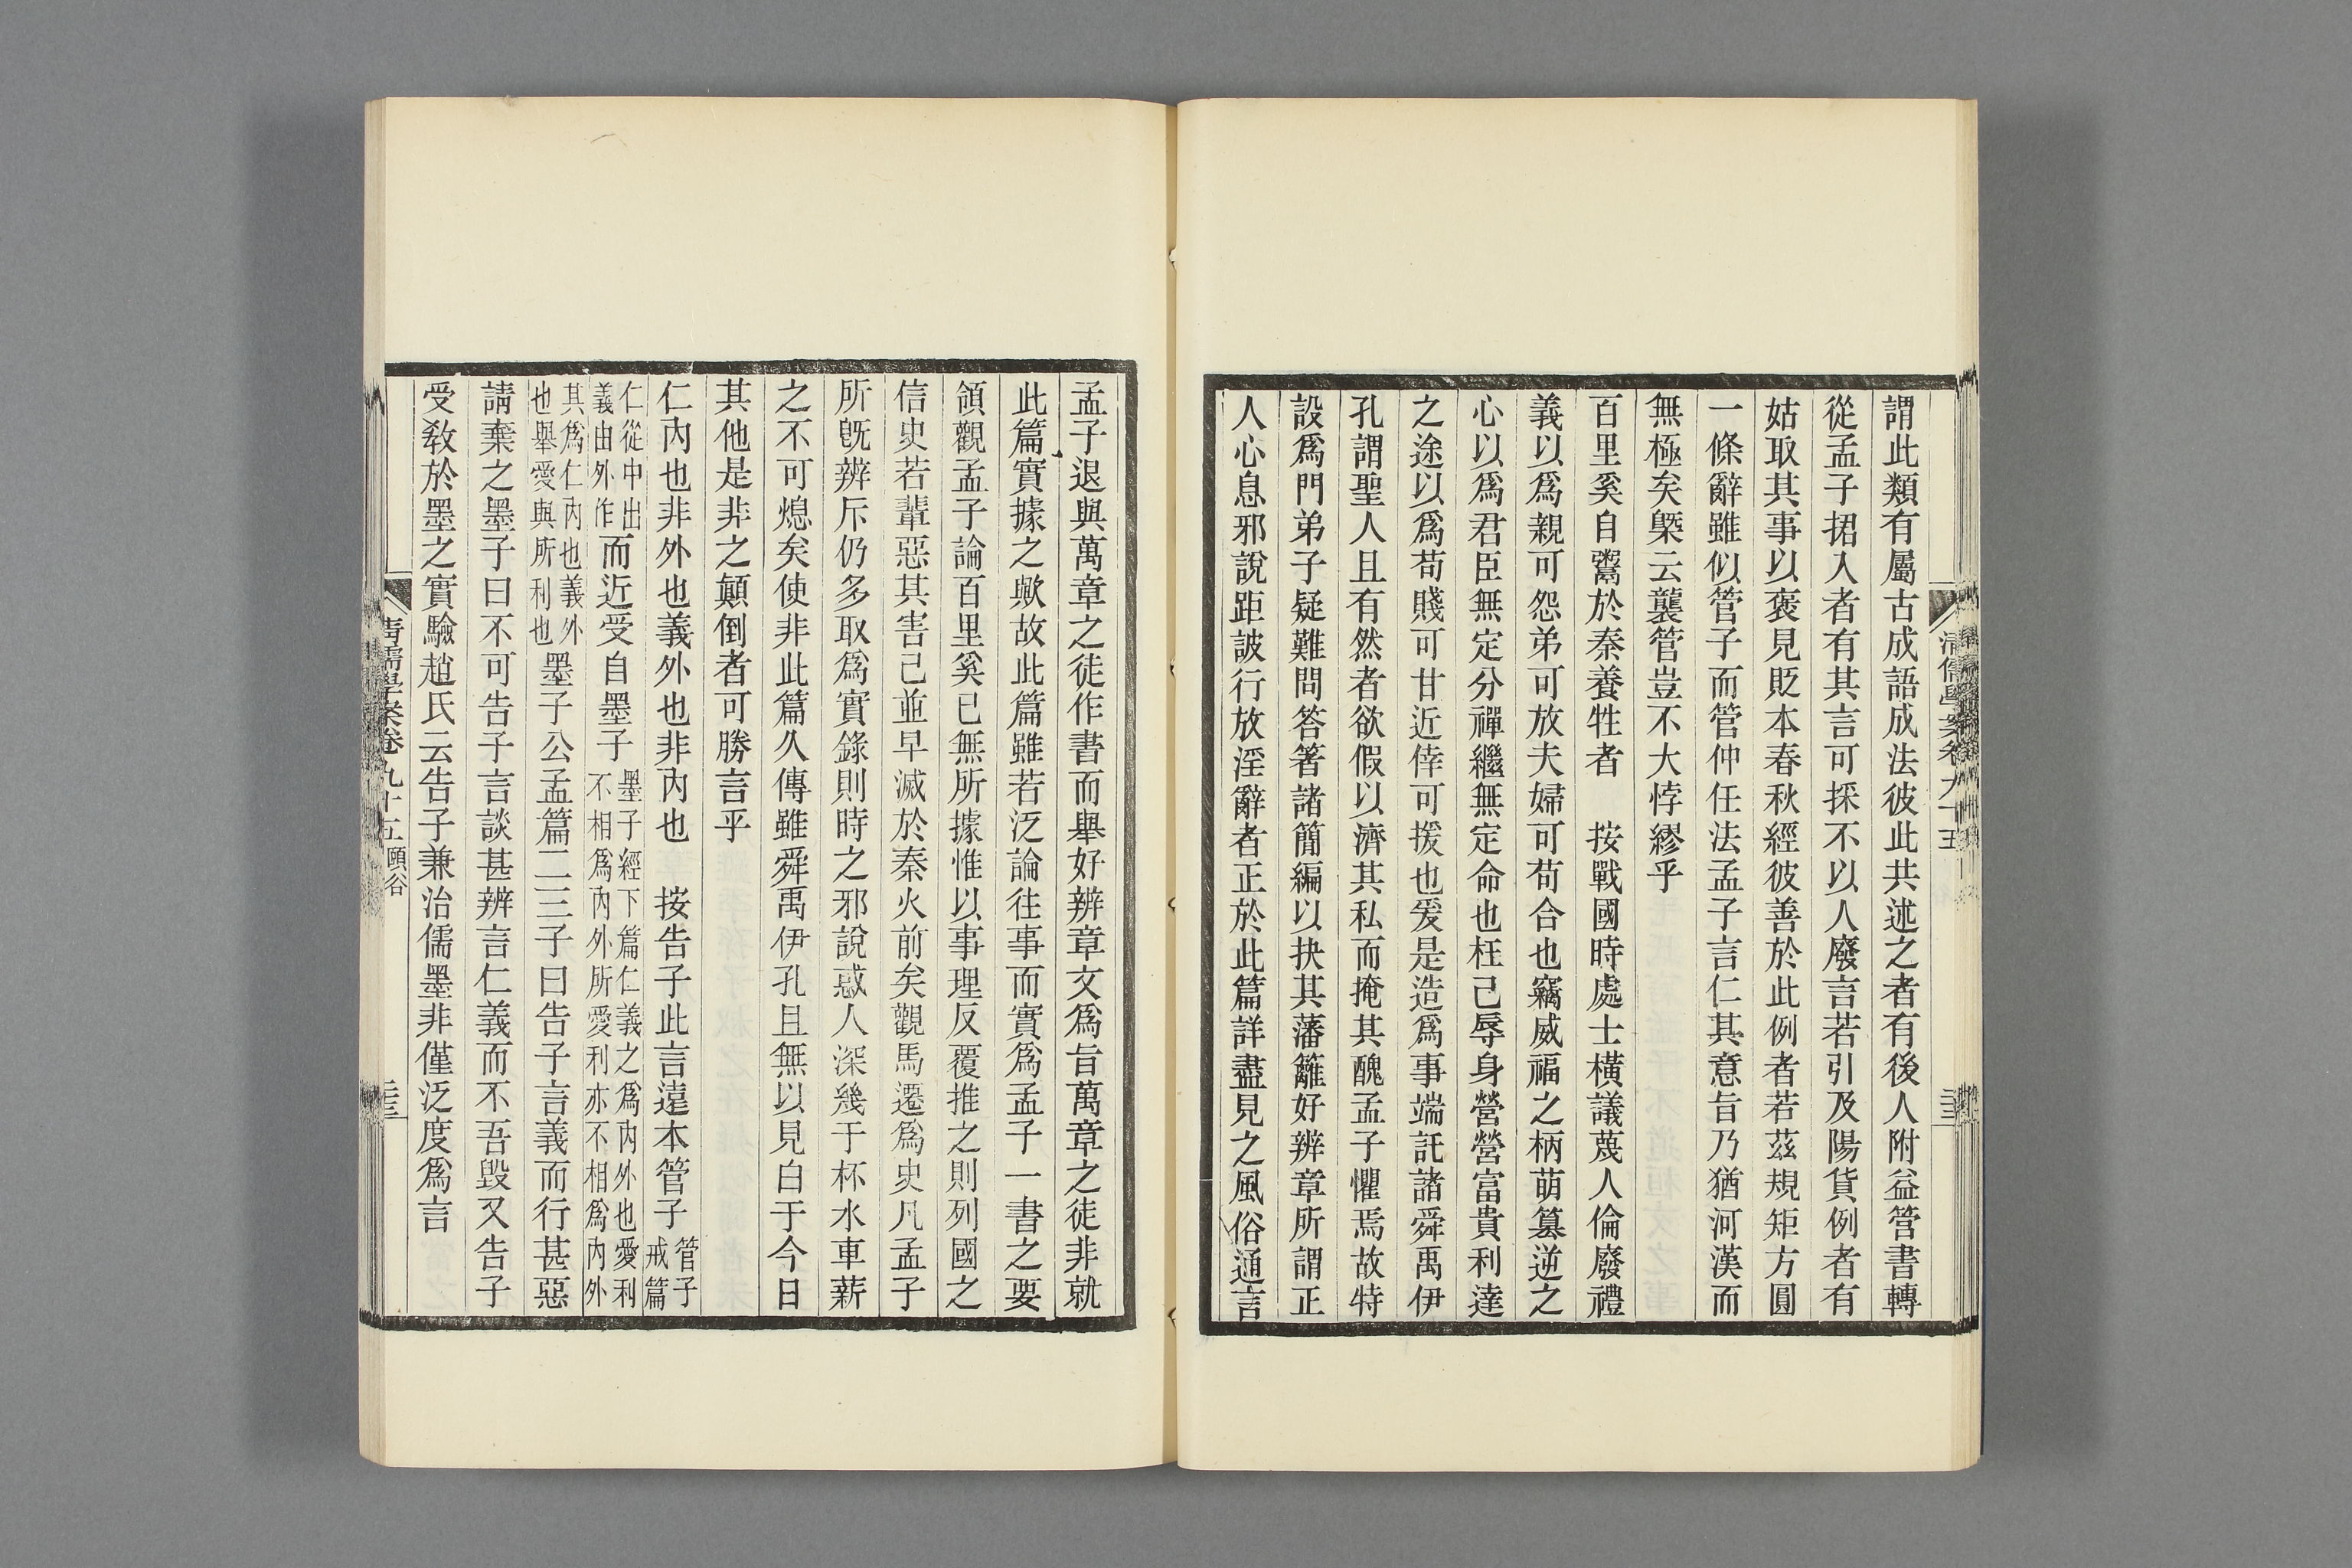 謂此類有屬古成語成法彼此共述之者有後人附益管書轉
從孟子捃入者有其言可採不以人廢言若引及陽貨例者有
姑取其事以褒見貶本春秋經彼善於此例者若茲規矩方圓
一條辭雖似管子而管仲任法孟子言仁其意旨乃猶河漢而
無極矣槩云襲管豈不大悖繆乎
百里奚自鬻於秦養牲者　按戰國時處士橫議蔑人倫廢禮
義以爲親可怨弟可放夫婦可苟合也竊威福之柄萌篡逆之
心以爲君臣無定分禪繼無定命也枉己辱身營營富貴利達
之途以爲苟賤可甘近倖可援也爰是造爲事端託諸舜禹伊
孔謂聖人且有然者欲假以濟其私而掩其醜孟子懼焉故特
設爲門弟子疑難問答箸諸簡編以抉其藩籬好辨章所謂正
人心息邪說距詖行放淫辭者正於此篇詳盡見之風俗通言
清儒學案卷九十五
三十三
孟子退與萬章之徒作書而舉好辨章文爲旨萬章之徒非就
此篇實據之歟故此篇雖若泛論往事而實爲孟子一書之要
領觀孟子論百里奚已無所據惟以事理反覆推之則列國之
信史若輩惡其害己並早滅於秦火前矣觀馬遷爲史凡孟子
所旣辨斥仍多取爲實錄則時之邪說惑人深幾于杯水車薪
之不可熄矣使非此篇久傳雖舜禹伊孔且無以見白于今日
其他是非之顚倒者可勝言乎
仁內也非外也義外也非內也　按告子此言遠本管子管子戒篇
仁從中出義由外作而近受自墨子墨子經下篇仁義之爲內外也愛利不相爲內外所愛利亦不相爲內外
其爲仁內也義外也舉愛與所利也墨子公孟篇二三子曰告子言義而行甚惡
請棄之墨子曰不可告子言談甚辨言仁義而不吾毀又告子
受敎於墨之實驗趙氏云告子兼治儒墨非僅泛度爲言
清儒學案卷九十五　頤谷
三十三